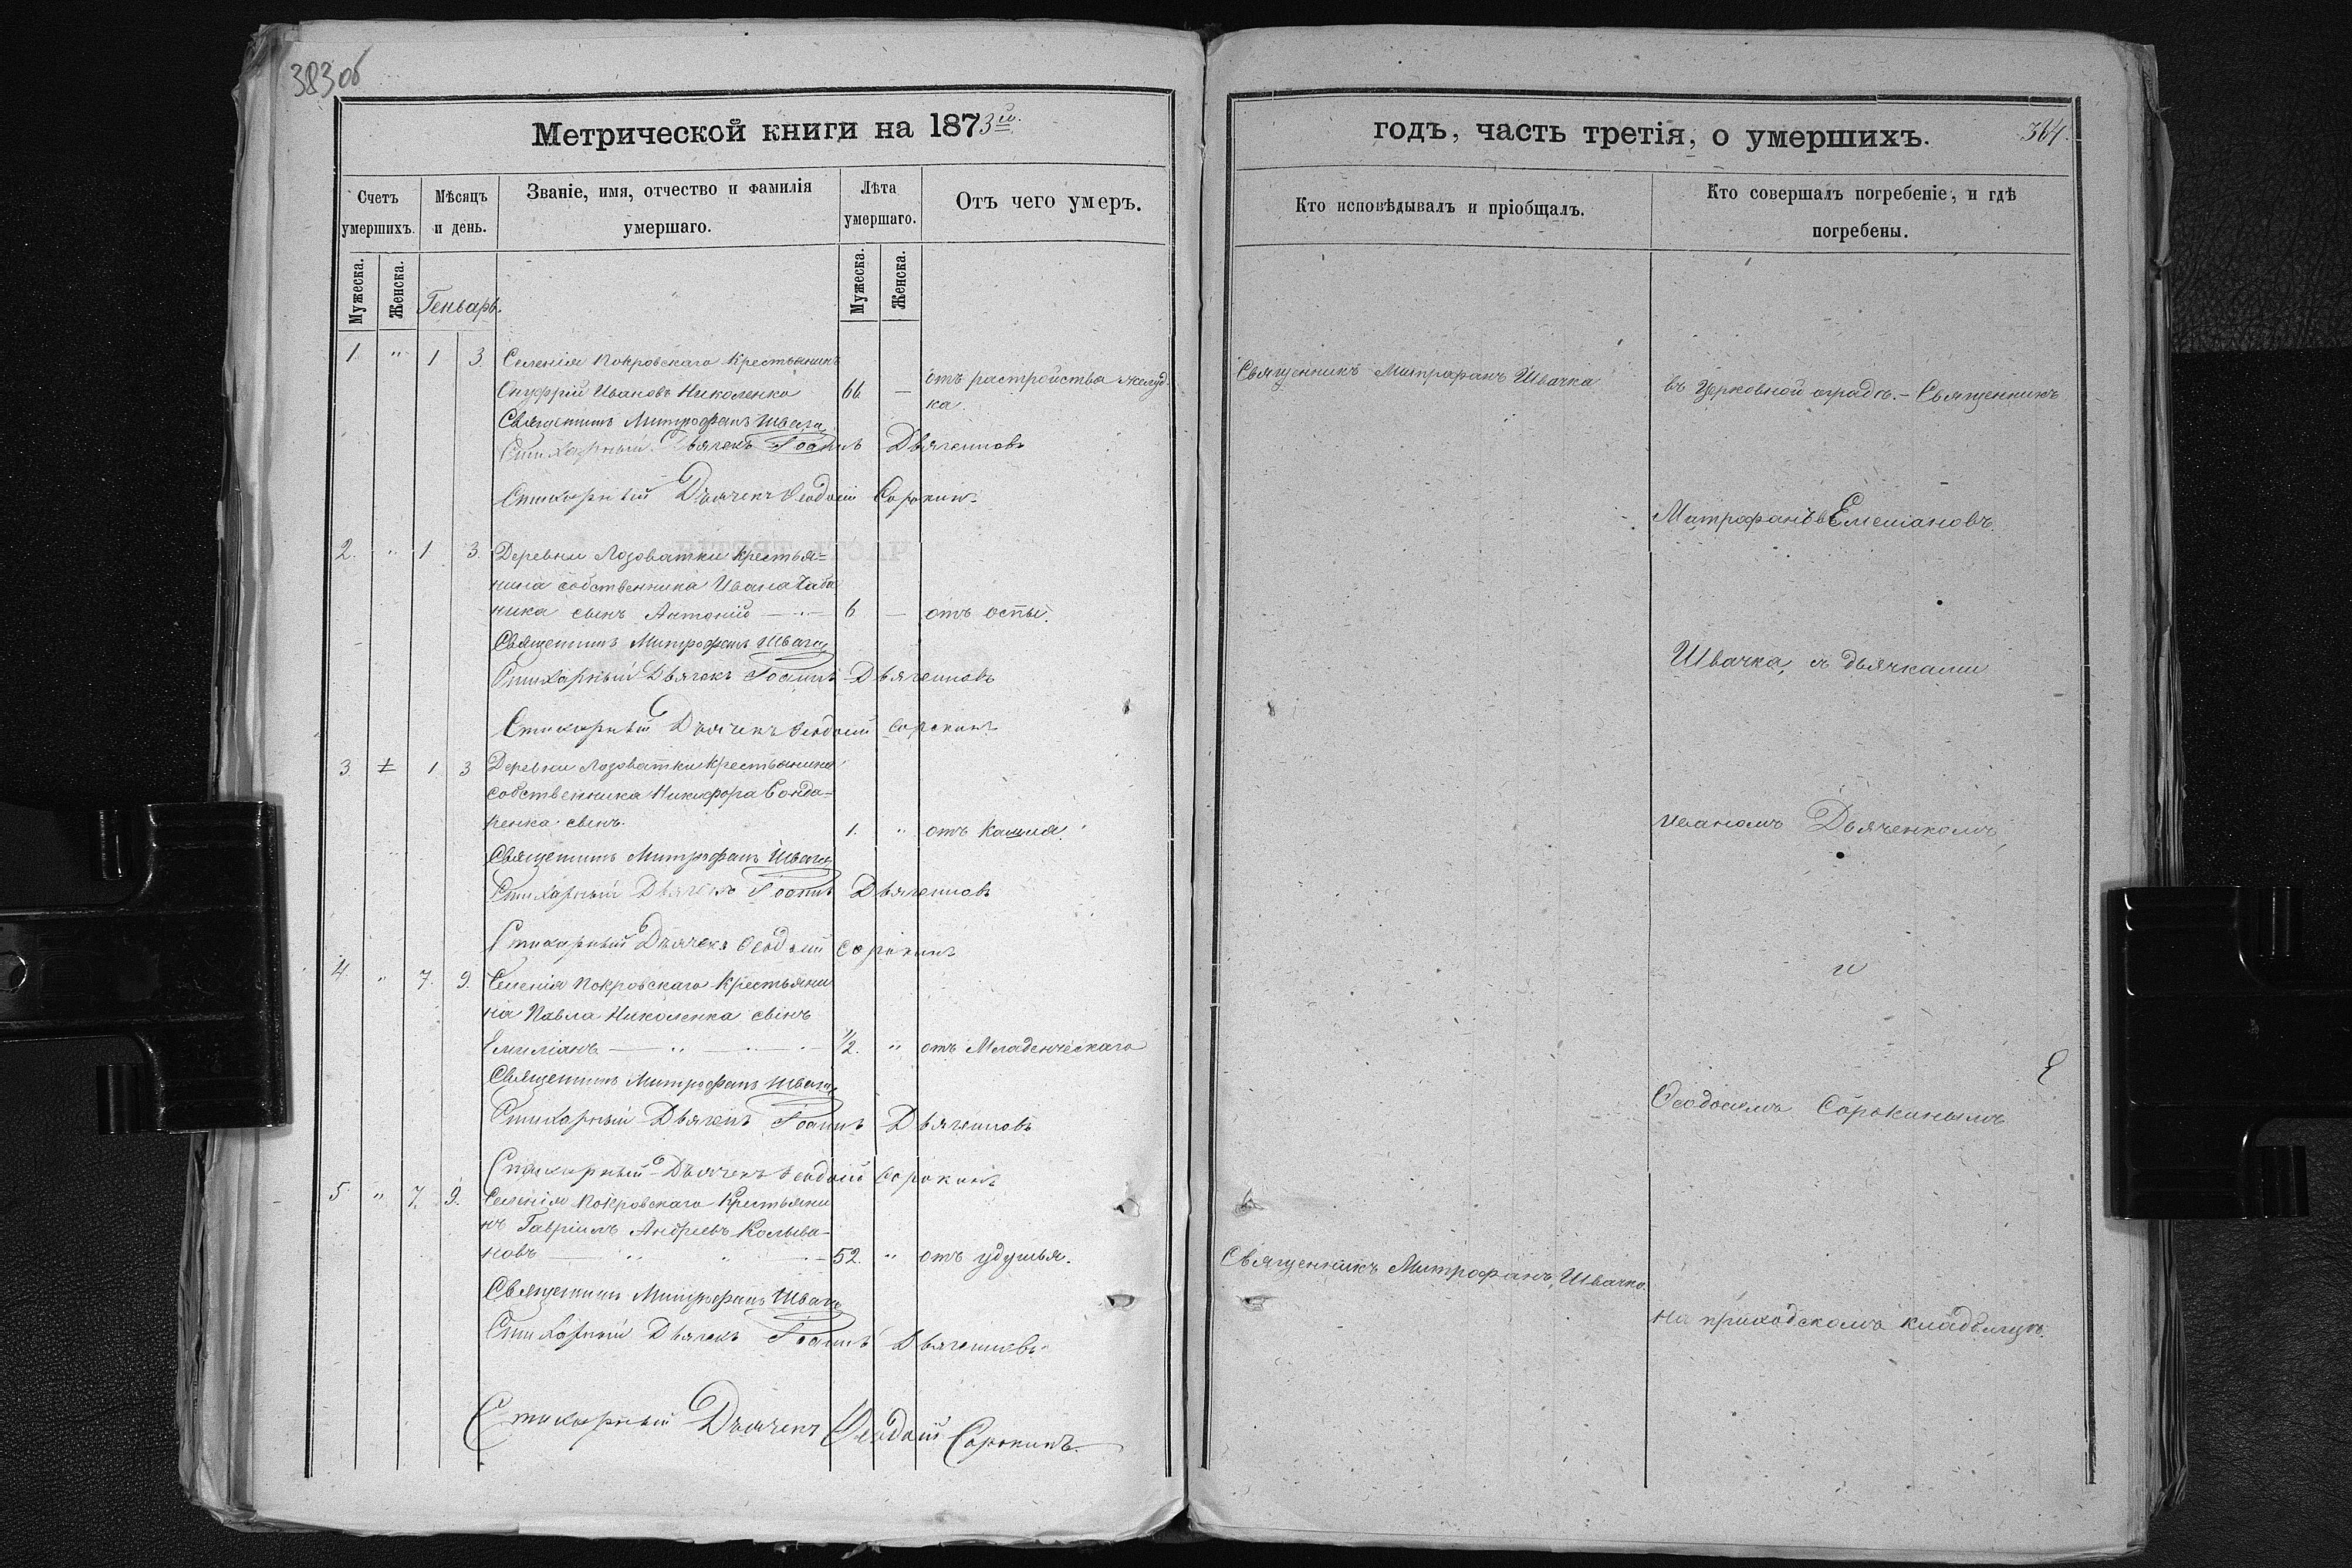 383 об
Метрической книги на 1873 й.
Счетъ умершихъ.
Мѣсяцъ и день.
Званіе, имя, отчество и фамилія умершаго.
Лѣта умершаго.
Отъ чего умеръ.
Мужеска.
Женска.
Геньарь.
Мужеска.
Женска.
1. " 1 3. Селенія Покровскаго Крестьянинъ
Онуфрій Ивановъ Николенко 66 — отъ растройства желуд-
ка.
Священникъ Митрофанъ Швачка
Стихарный Дьячекъ Іоаннъ Дьяченковъ
Стихарный Дьячекъ Ѳеодосій Сорокинъ
2. " 1 3. Деревни Лозоватки крестья=
нина собственника Ивана Чаба
ника сынъ Антоній — " — 6 — отъ оспы.
Священникъ Митрофанъ Швачка
Стихарный Дьячекъ Іоаннъ Дьяченковъ
Стихарный Дьячекъ Ѳеодосій Сорокинъ
3 1 3 Деревни Лозоватки крестьянина
собственника Никифора Бонда-
ренка сынъ. 1. " отъ кашля.
Священникъ Митрофанъ Швачка
Стихарный Дьячекъ Іоаннъ Дьяченковъ
Стихарный Дьячекъ Ѳеодосій Сорокинъ
4. " 7. 9. Селенія Покровскаго Крестьяни
на Павла Николенка сынъ
Емиліанъ — " — " — 1/2. " отъ Младенческаго
Священникъ Митрофанъ Швачка
Стихарный Дьячекъ Іоаннъ Дьяченковъ
Стихарный Дьячекъ Ѳеодосій Сорокинъ
5 " 7. 9. Селенія Покровскаго Крестьяни
нъ Гавріилъ Андреевъ Колыва-
новъ — " — 52. " отъ удушья.
Священникъ Митрофанъ Швачка
Стихарный Дьячекъ Іоаннъ Дьяченковъ
Стихарный Дьячекъ Ѳеодосій Сорокинъ.
годъ, часть третія, о умершихъ.
384.
Кто исповѣдывалъ и пріобщалъ.
Кто совершалъ погребеніе, и гдѣ погребены.
Священникъ Митрофанъ Швачка
въ Церковной оградѣ. — Священникъ
Митрофанъ
Швачка, съ дьячками
Иваномъ Дьяченкомъ,
и
Ѳеодосіемъ Сорокинымъ
Священникъ Митрофанъ Швачка.
на приходскомъ кладбищѣ.